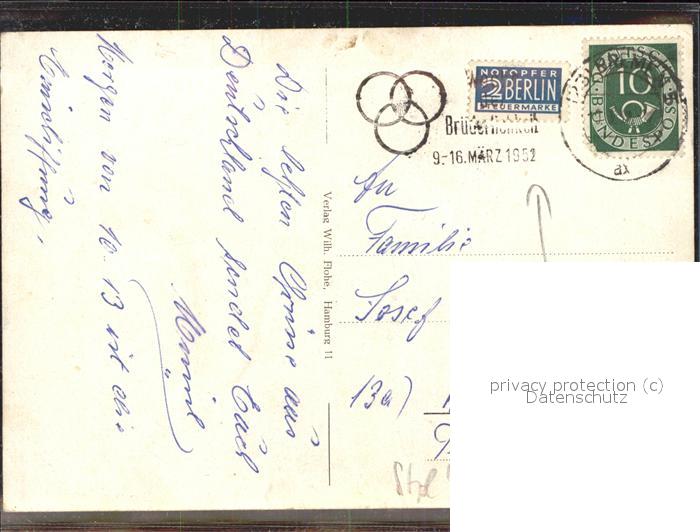 Die letzten Grüsse aus
Deutschland sendet Euch
Morgen von 10-13 ist die
Einschiffung.
Verlag Wilh. Flohe, Hamburg 11
NOTOPFER
2 BERLIN
STEUERMARKE
Brüderlichkeit
9.-16. MÄRZ 1952
DEUTSCHE
10
BUNDESPOST
ax
An
Familie
Josef
13a)
privacy protection (c)
Datenschutz